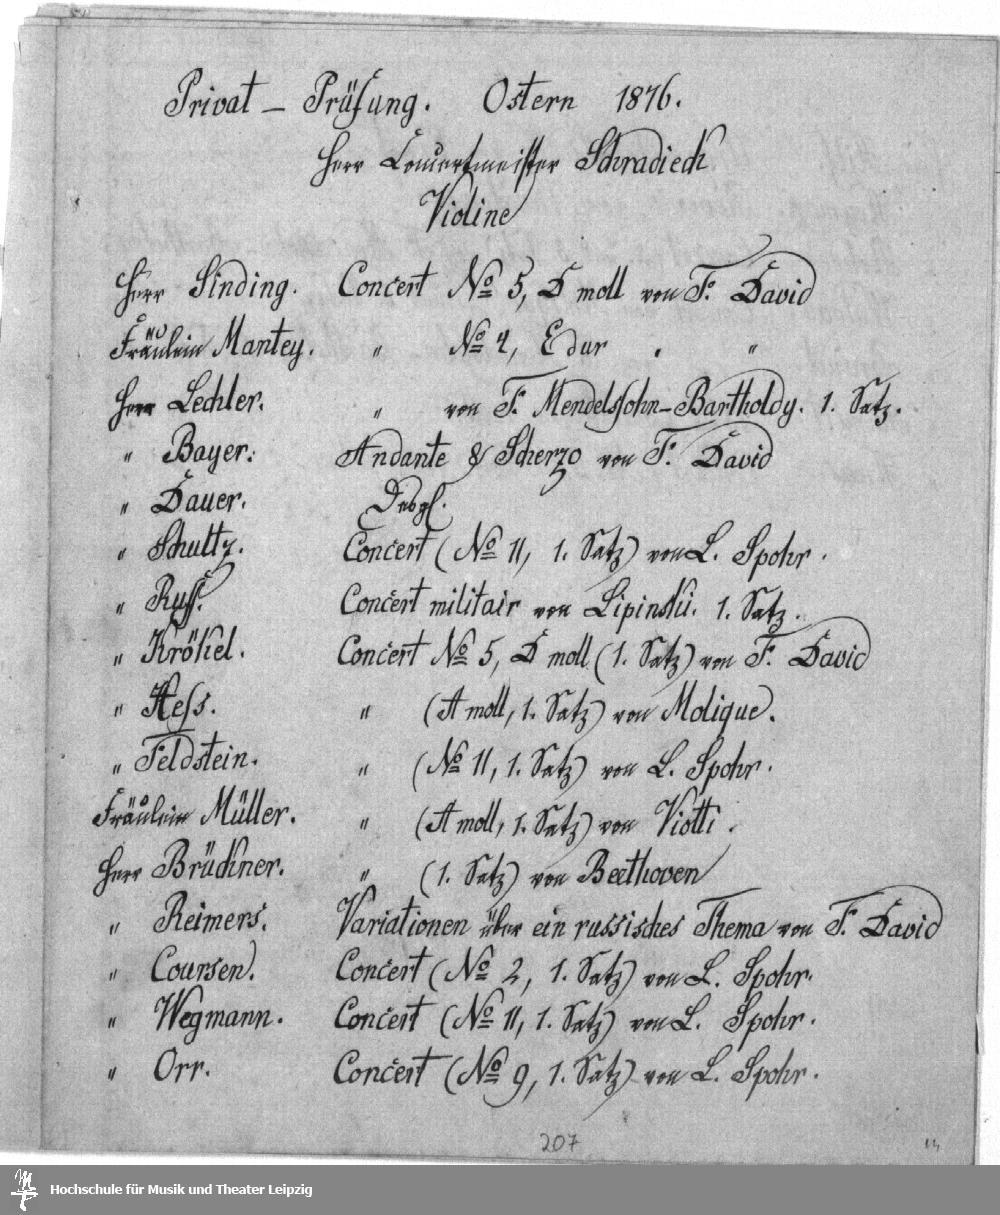 Privat - Prüfung. Ostern 1876.
Herr Concertmeister Schradieck
Violine
Herr Sinding. Concert No 5, D moll von F. David
Fräulein Mantey. " No 4, E dur " "
Herr Lechler. " von F. Mendelssohn-Bartholdy. 1. Satz.
" Bayer. Andante & Scherzo von F. David
" Dauer. Desgl.
" Schultz. Concert (No 11, 1. Satz) von L. Spohr.
" Russ. Concert militair von Lipinski. 1. Satz.
" Krökel. Concert No 5, D moll (1. Satz) von F. David
" Hess. " (A moll, 1. Satz) von Molique.
" Feldstein. " (No 11, 1. Satz) von L. Spohr.
Fräulein Müller. " (A moll, 1. Satz) von Viotti.
Herr Brückner. " (1. Satz) von Beethoven
" Reimers. Variationen über ein russisches Thema von F. David
" Coursen. Concert (No 2, 1. Satz) von L. Spohr.
" Wegmann. Concert (No 11, 1. Satz) von L. Spohr.
" Orr. Concert (No 9, 1. Satz) von L. Spohr.
207
Hochschule für Musik und Theater Leipzig